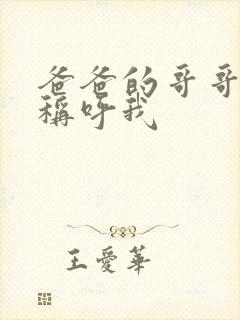 爸爸的哥哥
稱呼我
王愛華